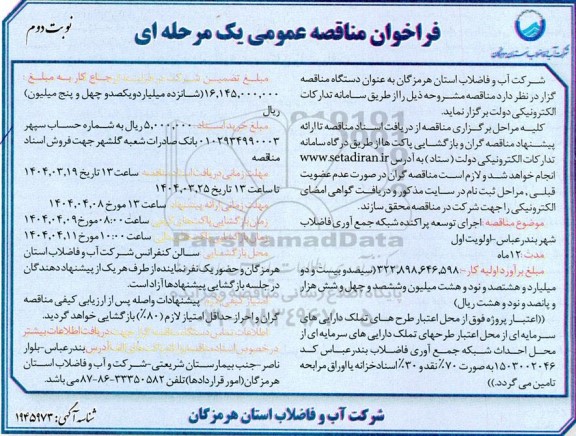 فراخوان مناقصه عمومی یک مرحله ای
نوبت دوم
شرکت آب و فاضلاب استان هرمزگان
شرکت آب و فاضلاب استان هرمزگان به عنوان دستگاه مناقصه
گزار در نظر دارد مناقصه مشروحه ذیل را از طریق سامانه تدارکات
الکترونیکی دولت برگزار نماید.
کلیه مراحل برگزاری مناقصه از دریافت اسناد مناقصه تا ارائه
پیشنهاد مناقصه گران و بازگشایی پاکت ها از طریق درگاه سامانه
تدارکات الکترونیکی دولت (ستاد) به آدرس www.setadiran.ir
انجام خواهد شد و لازم است مناقصه گران در صورت عدم عضویت
قبلی, مراحل ثبت نام در سایت مذکور و دریافت گواهی امضای
الکترونیکی را جهت شرکت در مناقصه محقق سازند.
موضوع مناقصه: اجرای توسعه پراکنده شبکه جمع آوری فاضلاب
شهر بندرعباس-اولویت اول
مدت: ۱۲ماه
مبلغ برآورد اولیه کار: ۳۲۲,۸۹۸,۶۴۶,۵۹۸(سیصد و بیست و دو
میلیارد و هشتصد و نود و هشت میلیون وششصد و چهل و شش هزار
و پانصد و نود و هشت ریال)
((اعتبار پروژه فوق از محل اعتبار طرح های تملک دارایی های
سرمایه ای از محل اعتبار طرحهای تملک دارایی های سرمایه ای از
محل احداث شبکه جمع آوری فاضلاب بندرعباس کد
۱۵۰۳۰۰۲۰۴۶ به صورت ۷۰٪ نقد و ۳۰٪ اسناد خزانه یا اوراق مرابحه
تامین می گردد.))
مبلغ تضمین شرکت در فرایند ارجاع کار به مبلغ :
۱۶,۱۴۵,۰۰۰,۰۰۰(شانزده میلیارد و یکصد و چهل و پنج میلیون)
ریال
مبلغ خرید اسناد: ۵,۰۰۰,۰۰۰ ریال به شماره حساب سپهر
۰۱۰۲۹۳۴۹۹۰۰۰۳ بانک صادرات شعبه گلشهر جهت فروش اسناد
مناقصه
مهلت زمانی دریافت اسناد مناقصه: ساعت ۱۳ تاریخ ۱۴۰۴,۰۳,۱۹
تا ساعت ۱۳ تاریخ ۱۴۰۴,۰۳,۲۵
مهلت زمانی ارائه پیشنهاد: ساعت ۱۳ مورخ ۱۴۰۴,۰۴,۰۸
زمان بازگشایی پاکت های ارزیابی: ساعت ۰۸:۰۰ مورخ ۱۴۰۴,۰۴,۰۹
ساعت ۱۰:۰۰ مورخ ۱۴۰۴,۰۴,۱۱
محل بازگشایی: سالن کنفرانس شرکت آب و فاضلاب استان
هرمزگان و حضور یک نفر نماینده از طرف هر یک از پیشنهاد دهندگان
در جلسه بازگشایی پیشنهادها آزاد است.
پیشنهادات واصله پس از ارزیابی کیفی مناقصه
گران و احراز حداقل امتیاز لازم (۸۰٪) بازگشایی خواهد گردید.
اطلاعات تماس دستگاه مناقصه گزار جهت دریافت اطلاعات بیشتر
در خصوص اسناد مناقصه و ارائه پاکت های الف: آدرس بندرعباس-بلوار
ناصر-جنب بیمارستان شریعتی-شرکت آب و فاضلاب استان
هرمزگان (امور قراردادها) تلفن ۳۳۳۵۰۵۸۲-۸۶-۸۷ می باشد.
ParsNamadData
شرکت آب و فاضلاب استان هرمزگان
شناسه آگهی: ۱۹۴۵۹۷۳